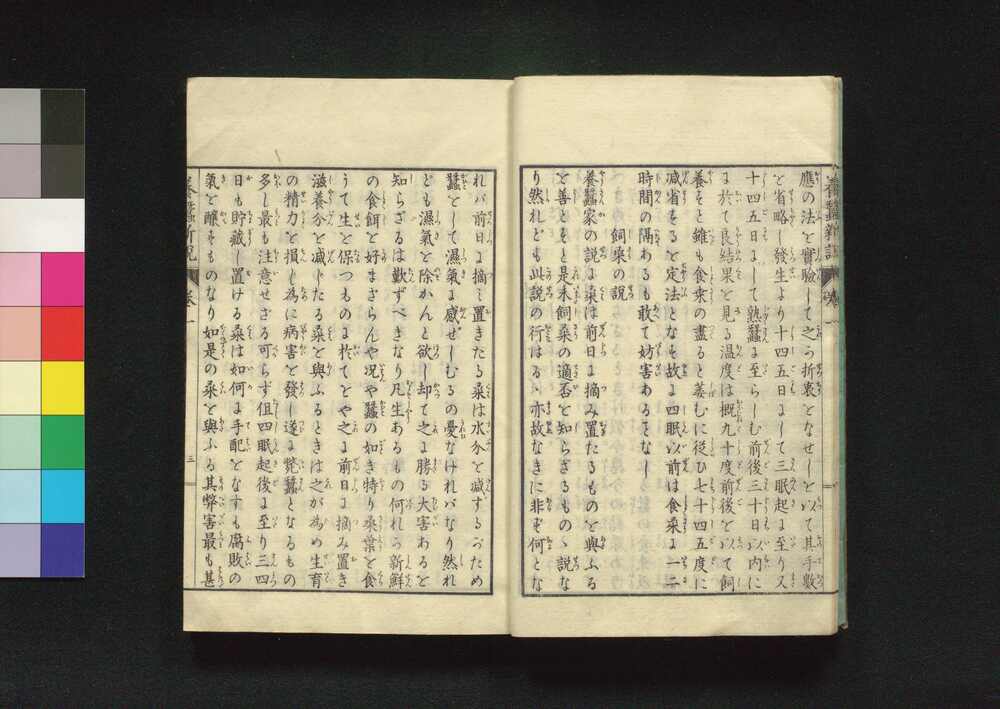 應の法を實驗して之が折衷となせしを以て其手數
を省略し發生より十四五日にして三眠起に至り又
十四五日にして熟蠶に至らしむ前後三十日以内に
に於て良結果を見る温度は概九十度前後を以て飼
養をと雖も食桑の盡ると萎むに從ひ七十四五度に
減省をるを定法となを故に四眠以前は食桑に一二
時間の隔あるも敢て妨害あるとなし
飼桑の説
養蠶家の説に桑は前日に摘み置たるものを與ふる
を善とそと是未飼桑の適否を知らざるものゝ説な
り然れども此説の行はるゝ亦故なきに非ぞ何とな
養蠶新説 卷一
れバ前日に摘ミ置きたる桑は水分を減ずるがため
蠶をして濕氣に感ぜしむるの憂なけれバなり然れ
ども濕氣を除かんと欲し却て之に勝る大害あるを
知らざるは歎ずべきなり凡生あるもの何れか新鮮
の食餌を好まざらんや况や蠶の如き特り桑葉を食
うて生を保つものに於てをや之に前日に摘み置き
滋養分を減じたる桑を與ふるときは之が為め生育
の精力を損し為に病害を發し遂に斃蠶となるもの
多し最も注意せざる可らず但四眠起後に至り三四
日も貯藏し置ける桑は如何に手配をなすも腐敗の
氣を醸そものなり如是の桑を與ふる其弊害最も甚
養蠶新説 卷一 三